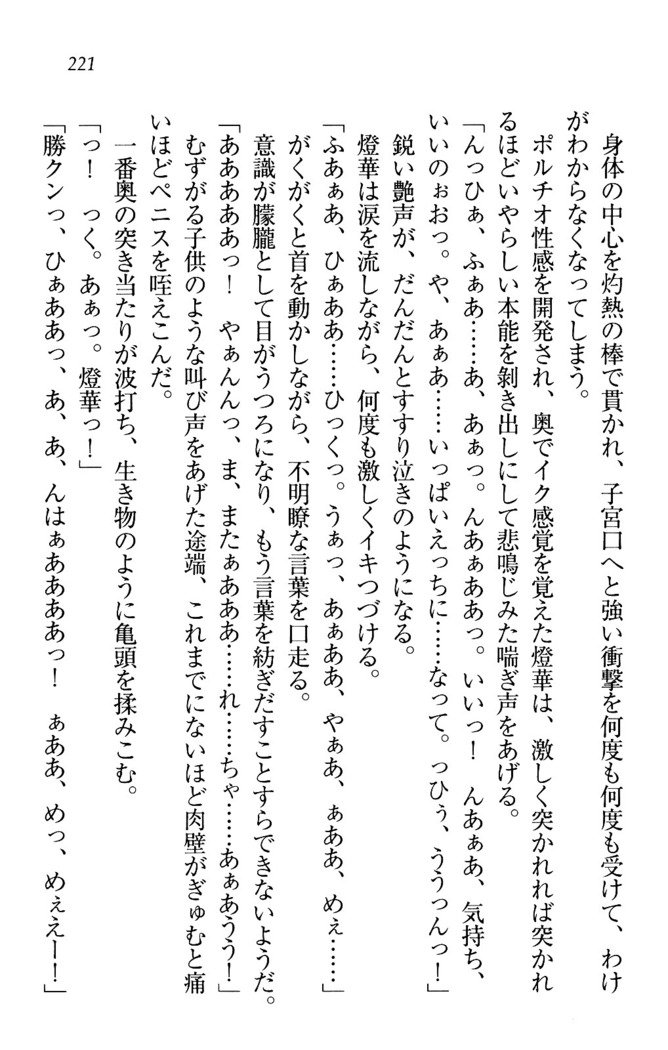 221
身体の中心を灼熱の棒で貫かれ、子宮口へと強い衝撃を何度も何度も受けて、わけ
がわからなくなってしまう。
ポルチオ性感を開発され、奥でイク感覚を覚えた燈華は、激しく突かれれば突かれ
るほどいやらしい本能を剝き出しにして悲鳴じみた喘ぎ声をあげる。
「んっひぁ、ふぁあ……あ、あぁっ。んあぁああっ。いいっ！　んあぁあ、気持ち、
いいのぉおっ。や、あぁあ……いっぱいえっちに……なって。っひぅ、ううっんっ！」
鋭い艶声が、だんだんとすすり泣きのようになる。
燈華は涙を流しながら、何度も激しくイキつづける。
「ふあぁあ、ひぁああ……ひっくっ。うぁっ、あぁああ、やぁあ、ぁああ、めぇ……」
がくがくと首を動かしながら、不明瞭な言葉を口走る。
意識が朦朧として目がうつろになり、もう言葉を紡ぎだすことすらできないようだ。
「あああああっ！　やぁんんっ、ま、またぁあああ……れ……ちゃ……あぁあうう！」
むずがる子供のような叫び声をあげた途端、これまでにないほど肉壁がぎゅむと痛
いほどペニスを咥えこんだ。
一番奥の突き当たりが波打ち、生き物のように亀頭を揉みこむ。
「っ！　っく。あぁっ。燈華っ！」
「勝クンっ、ひぁああっ、あ、あ、んはぁあああああっ！　ぁああ、めっ、めぇえー！」